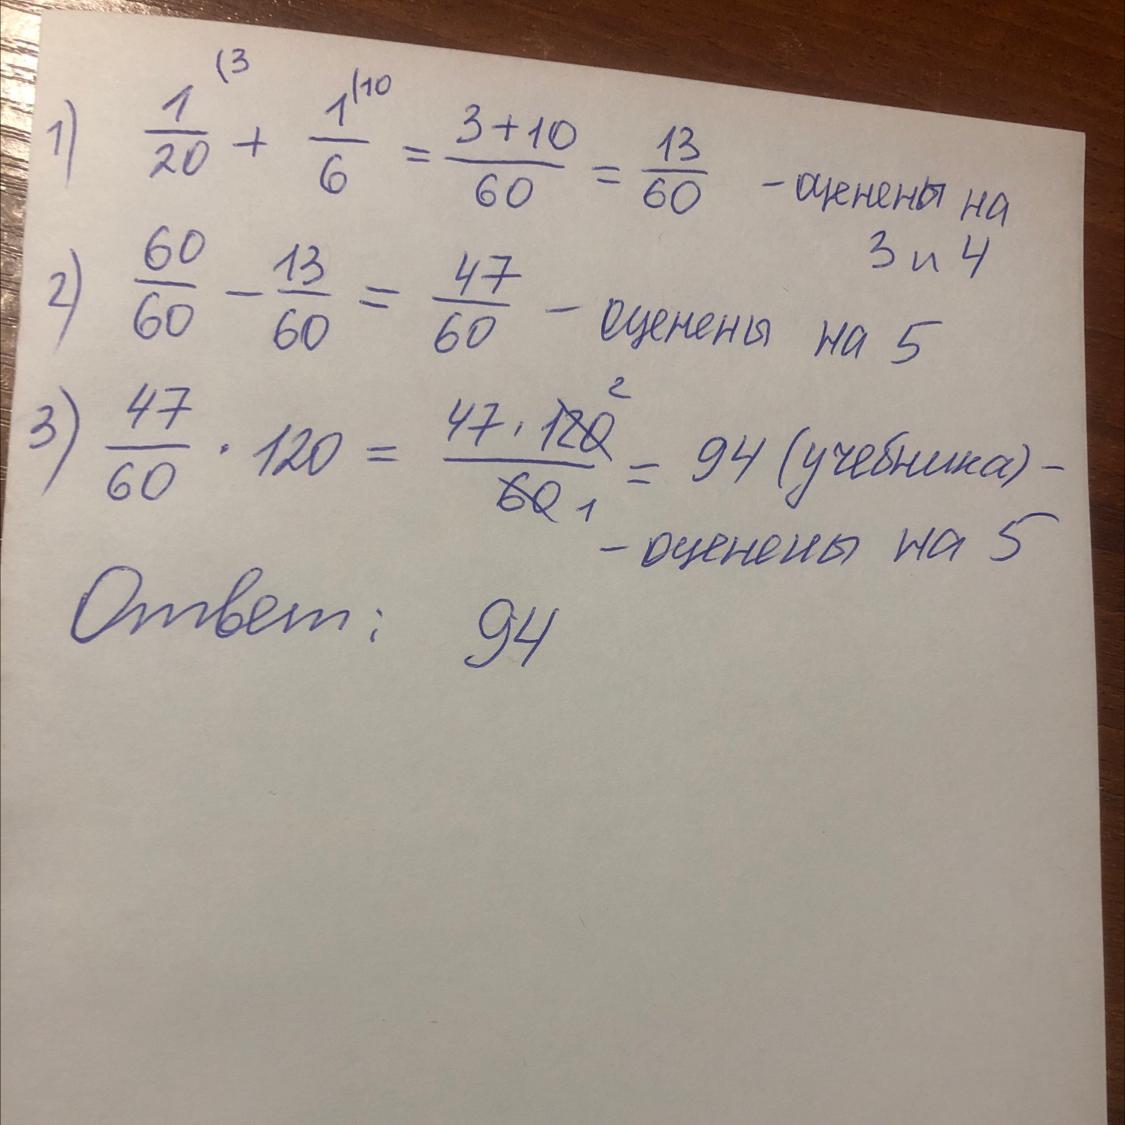 1) 1/20 (3 + 1/6 (10 = 3+10/60 = 13/60 - оценены на
3 и 4
2) 60/60 - 13/60 = 47/60 - оценены на 5
3) 47/60 · 120 = 47·120 2/60 1 = 94 (учебника) -
- оценены на 5
Ответ: 94